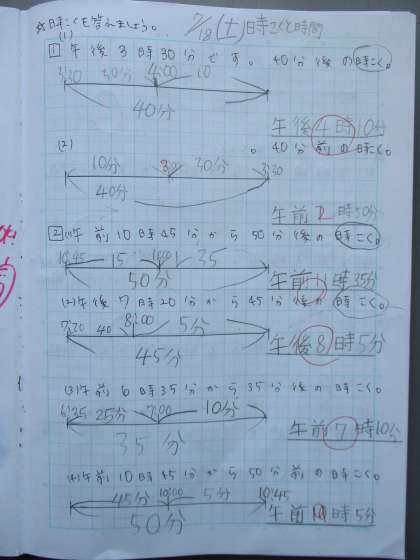 ☆時こくを答えましょう。 7/18(土)時こくと時間
(1)
1 午後3時30分です。40分後の時こく。
3:30 30分 4:00 10
40分
午後4時10分
(2) 。40分前の時こく。
10分 3:00 30分 3:30
40分
午前2時50分
2 (1)午前10時45分から50分後の時こく。
10:45 15 11:00 35
50分
午前11時35分
(2)午後7時20分から45分後の時こく。
7:20 40 8:00 5分
45分
午後8時5分
(3)午前6時35分から35分後の時こく。
6:35 25分 7:00 10分
35分
午前7時10分
(4)午前10時45分から50分前の時こく。
45分 10:00 5分 10:45
50分
午前 時5分